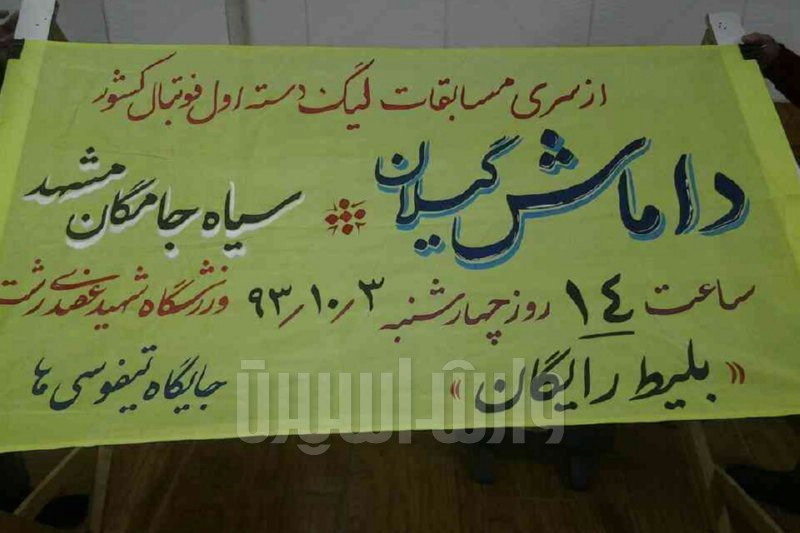 از سری مسابقات لیگ دسته اول فوتبال کشور
داماش گیلان * سیاه جامگان مشهد
ساعت ۱۴ روز چهارشنبه ۹۳/۱۰/۳ ورزشگاه شهید عضدی رشت
« بلیط رایگان » جایگاه تیفوسی ها
وارش اسپرت